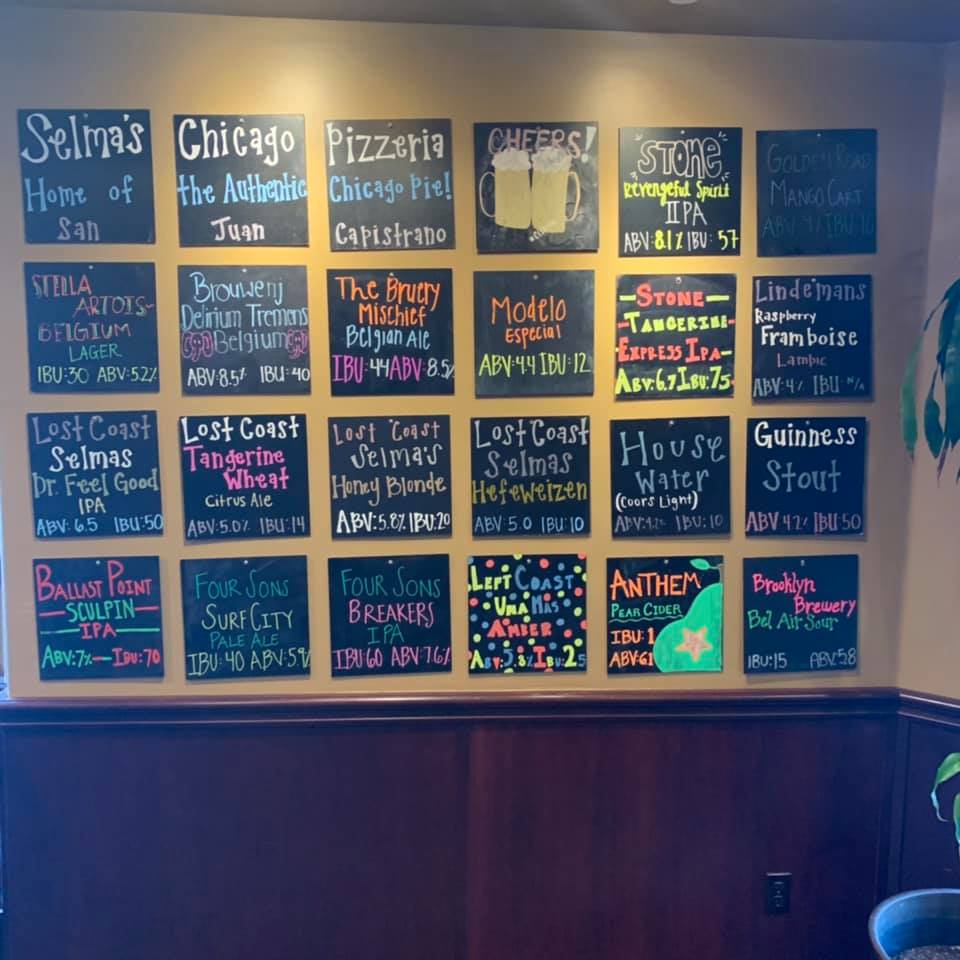 Selma's
Home of
San
Chicago
the Authentic
Juan
Pizzeria
Chicago Pie!
Capistrano
CHEERS!
STONE
Revengeful Spirit
IPA
ABV: 8.1% IBU: 57
GOLDEN ROAD
MANGO CART
STELLA
ARTOIS
BELGIUM
LAGER
IBU:30 ABV:5.2%
Brouwerij
Delirium Tremens
Belgium
ABV:8.5% IBU:40
The Bruery
Mischief
Belgian Ale
IBU:44 ABV:8.5%
Modelo
Especial
ABV:4.4 IBU:12
STONE
TANGERINE
EXPRESS IPA
ABV:6.7 IBU:75
Lindemans
Raspberry
Framboise
Lambic
ABV:4% IBU: N/A
Lost Coast
Selmas
Dr. Feel Good
IPA
ABV: 6.5 IBU:50
Lost Coast
Tangerine
Wheat
Citrus Ale
ABV:5.0% IBU:14
Lost Coast
Selma's
Honey Blonde
ABV:5.8% IBU:20
Lost Coast
Selmas
Hefeweizen
ABV:5.0 IBU:10
House
Water
(Coors Light)
ABV:4.2% IBU:10
Guinness
Stout
ABV 4.2% IBU:50
BALLAST POINT
SCULPIN
IPA
ABV:7% IBU:70
FOUR SONS
SURF CITY
PALE ALE
IBU:40 ABV:5.9%
FOUR SONS
BREAKERS
IPA
IBU:60 ABV:7.6%
LEFT COAST
UNA MAS
AMBER
ABV:5.8% IBU:25
ANTHEM
PEAR CIDER
IBU:1
ABV:61
Brooklyn
Brewery
Bel Air Sour
IBU:15 ABV:5.8